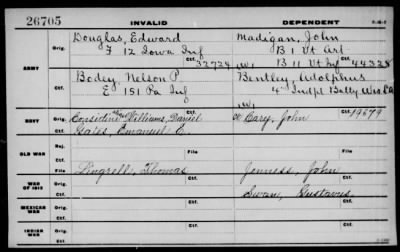 26705 INVALID DEPENDENT
Douglas, Edward Madigan, John
Orig. F 12 Iowa Inf B 1 Vt Art
Ctf. 32724 W. B 11 Vt Inf 44328
ARMY
Bodey, Nelson P Bentley, Adolphus
Orig. E 151 Pa Inf 4" Indpt Batty Wis L A
Ctf. W.
NAVY Orig. Considine Williams, Daniel Cary, John Ctf. 19679
Ctf. Gates, Emanuel E.
OLD WAR Rej.
Ctf. File File
WAR OF 1812 Orig. Lingrell, Thomas Ctf. Jenness, John Ctf.
Ctf. Swan, Gustavus
MEXICAN WAR Orig.
Ctf.
INDIAN WAR Orig.
Ctf.